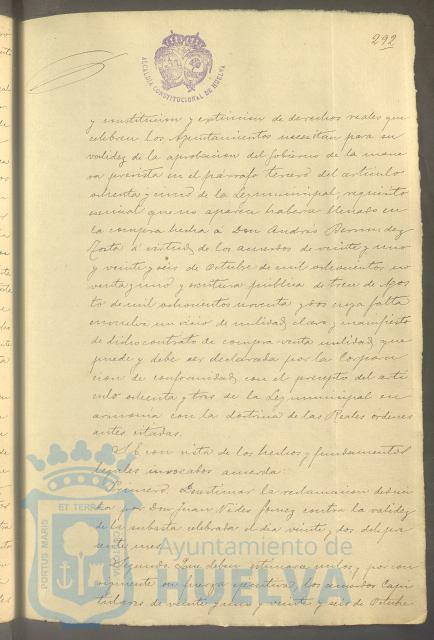 292
ALCALDIA CONSTITUCIONAL DE HUELVA
y constitucion y extincion de derechos reales que
celebren los Ayuntamientos necesitan para su
validez de la aprobacion del Gobierno de la mane-
ra prevista en el párrafo tercero del artículo
ochenta y cinco de la Ley municipal, requisito
esencial que no aparece haberse llenado en
la compra hecha á Don Andrés Bermudez
á virtud de los acuerdos de veinte y uno
y veinte y seis de Octubre de mil ochocientos no-
venta y uno y escritura pública de trece de Agos-
to de mil ochocientos noventa y dos cuya falta
envuelve un vicio de nulidad claro y manifiesto
de dicho contrato de compra venta nulidad que
puede y debe ser declarada por la Corpora-
cion de conformidad con el precepto del arti-
culo ochenta y tres de la Ley municipal en
armonia con la doctrina de las Reales ordenes
antes citadas.
con vista de los hechos y fundamentos
legales invocados acuerda:
Primero. Desestimar la reclamacion deduci-
da por Don Juan Nuñez Gomez contra la validez
de la subasta celebrada el dia veinte y dos del pre-
sente mes.
Segundo. Que deben estimarse nulos y por con-
siguiente sin fuerza ejecutiva los acuerdos Capi-
tulares de veinte y uno y veinte y seis de Octubre
PORTUS MARIS ET TERRAE
Ayuntamiento de
HUELVA